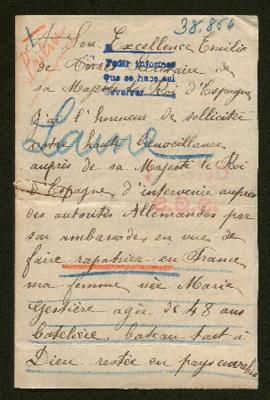 38,864
A Son Excellence Emilio
de Torres Secrétaire de
sa Majesté le Roi d'Espagne
Pedir informes
Que se hace asi
J'ai l'honneur de solliciter
votre haute bienveillance
auprès de sa Majesté le Roi
d'Espagne, d'intervenir auprès
des autorités Allemandes par
son ambassade, en vue de
faire rapatrier en France
ma femme née Marie
Gestière agée de 48 ans
batelière, bateau tout à
Dieu restée en pays envahis